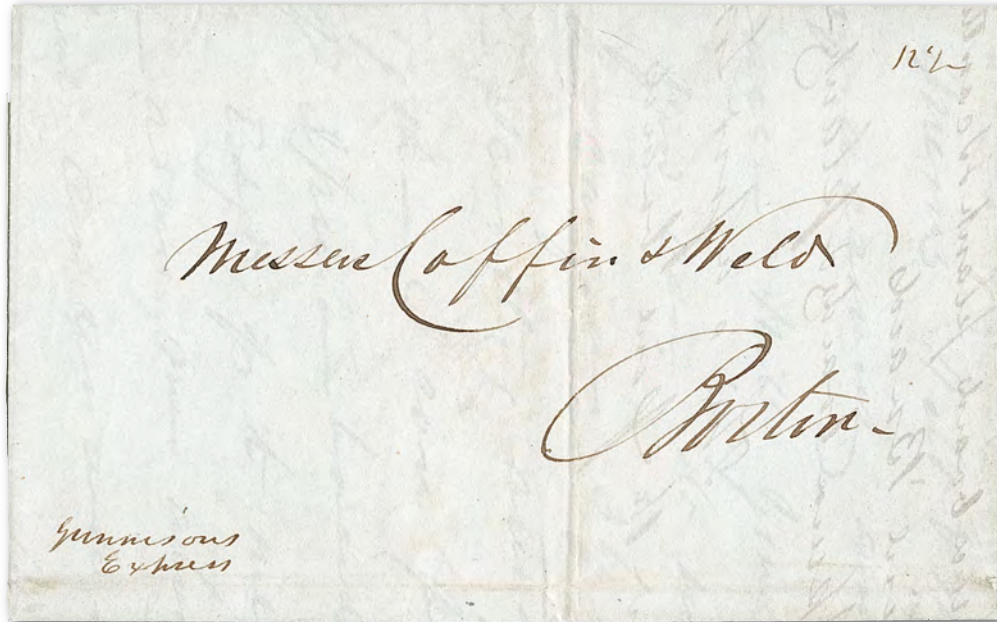 12½
Messrs Coffin & Weld
Boston -
Gunnison's
Express